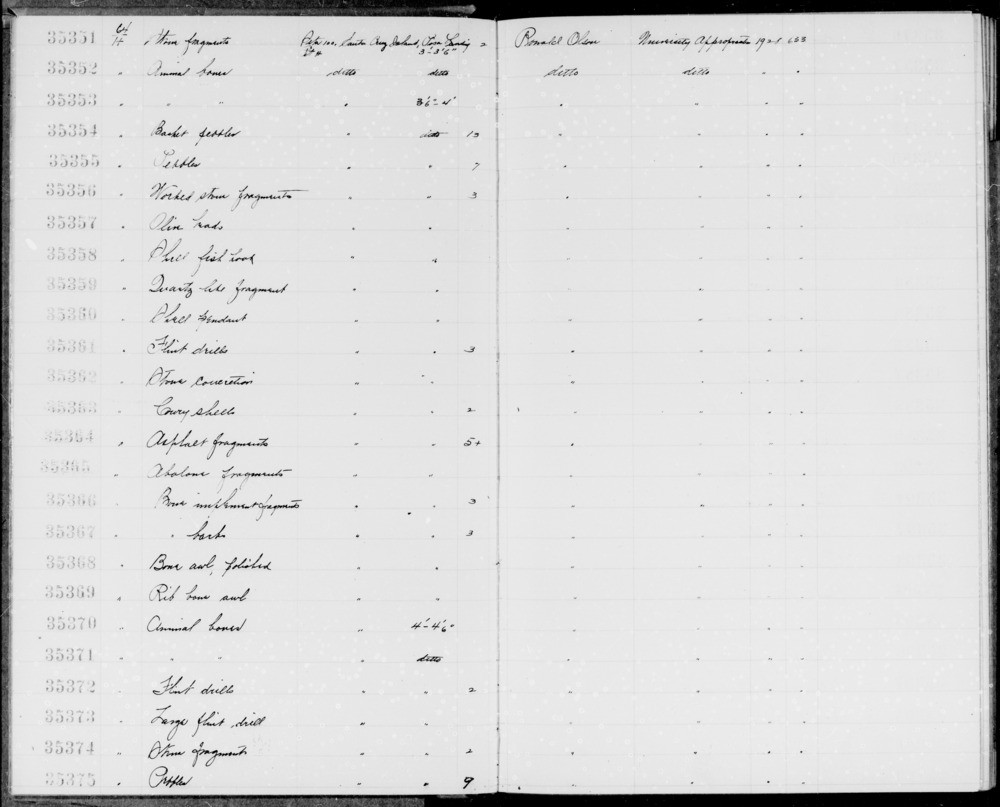 35351 Stone fragments Santa Cruz Island, 3'-3'6" 2 Ronald Olson University Appropriation 192 653
35352 " Animal bones ditto ditto ditto ditto " "
35353 " " " " 3'6"-4' " " " "
35354 " Basket pebbles " ditto 13 " " " "
35355 " Pebbles " " 7 " " " "
35356 " Worked stone fragments " " 3 " " " "
35357 " Olive " " " " " "
35358 " Shell fish hook " " " " " "
35359 " Quartz-like fragment " " " " " "
35360 " Shell pendant " " " " " "
35361 " Flint drills " " 3 " " " "
35362 " Stone concretion " " " " " "
35363 " Cowry shells " " 2 " " " "
35364 " Asphalt fragments " " 5+ " " " "
35365 " Abalone fragments " " " " " "
35366 " Bone implement fragments " " 3 " " " "
35367 " " barbs " " 3 " " " "
35368 " Bone awl, polished " " " " " "
35369 " Rib bone awl " " " " " "
35370 " Animal bones " 4'-4'6" " " " "
35371 " " " " ditto " " " "
35372 " Flint drills " " 2 " " " "
35373 " Large flint drill " " " " " "
35374 " Stone fragments " " 2 " " " "
35375 " Pebbles " " 9 " " " "